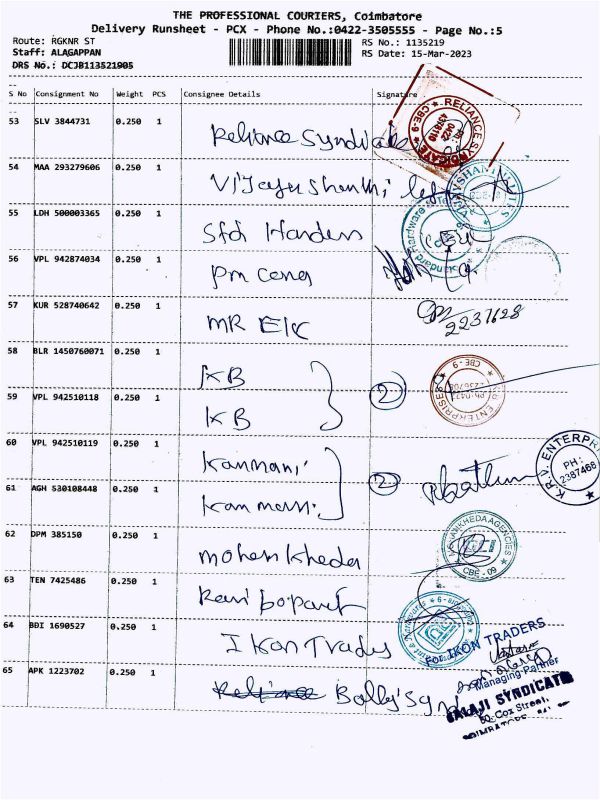 THE PROFESSIONAL COURIERS, Coimbatore
Delivery Runsheet - PCX - Phone No.:0422-3505555 - Page No.:5
Route: RGKNR ST RS No.: 1135219
Staff: ALAGAPPAN RS Date: 15-Mar-2023
DRS No.: DCJB113521905
S No Consignment No Weight PCS Consignee Details Signature
53 SLV 3844731 0.250 1 Reliance Syndicate
RELIANCE SYNDICATE CBE-9
54 MAA 293279606 0.250 1 Vijayashanthi
55 LDH 500003365 0.250 1
Hardware
56 VPL 942874034 0.250 1 Pm
57 KUR 528740642 0.250 1 MR
2237628
58 BLR 1450760071 0.250 1 KB 2
ENTERPRISES CBE-9
59 VPL 942510118 0.250 1 KB
60 VPL 942510119 0.250 1 Kanmani 2
K.R.V. ENTERPR
PH:
2387468
61 AGH 530108448 0.250 1 Kanmani
62 DPM 385150 0.250 1 Mohan Kheda
MOHANKHEDA AGENCIES CBE - 09
63 TEN 7425486 0.250 1 Ravi
64 BDI 1690527 0.250 1 Ikon Trades
For IKON TRADERS
Managing Partner
65 APK 1223702 0.250 1 Reliance
BALAJI SYNDICATE
60, Cox Street,